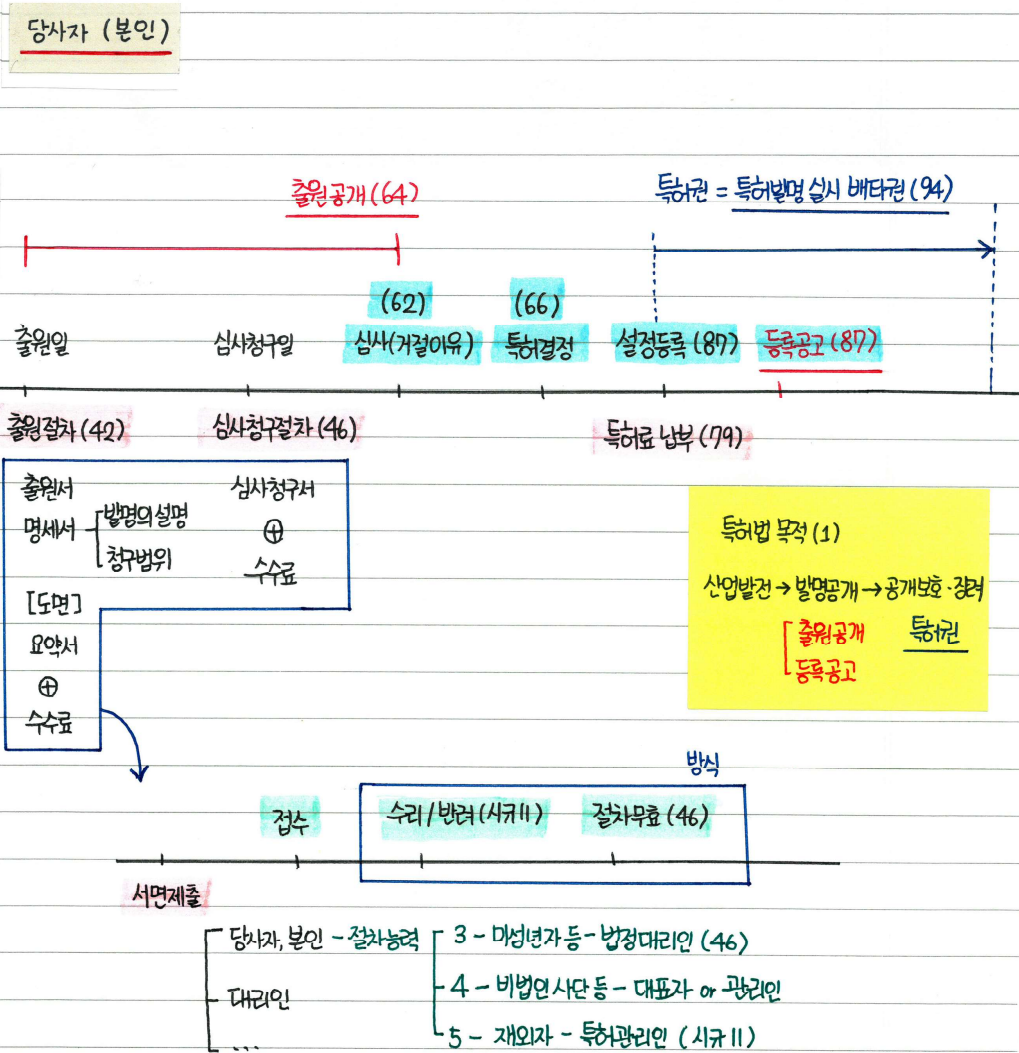 당사자 (본인)
출원공개 (64)
특허권 = 특허발명 실시 배타권 (94)
(62) (66)
출원일 심사청구일 심사(거절이유) 특허결정 설정등록 (87) 등록공고 (87)
출원절차 (42) 심사청구절차 (46) 특허료 납부 (79)
출원서 심사청구서
명세서 발명의 설명
청구범위
⊕
수수료
[도면]
요약서
⊕
수수료
특허법 목적 (1)
산업발전 → 발명공개 → 공개보호·장려
출원공개 특허권
등록공고
방식
접수 수리 / 반려 (시규11) 절차무효 (46)
서면제출
당사자, 본인 - 절차능력 3 - 미성년자 등 - 법정대리인 (46)
4 - 비법인 사단 등 - 대표자 or 관리인
대리인
5 - 재외자 - 특허관리인 (시규11)
...